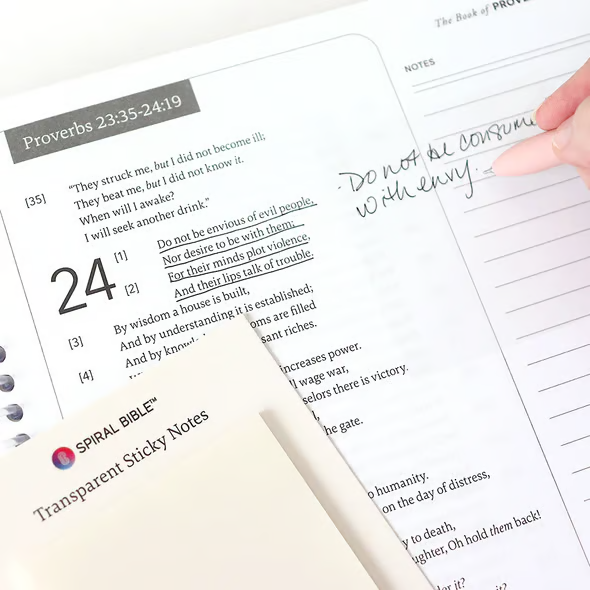 The Book of PROVE
NOTES
Proverbs 23:35-24:19
· Do not be consume
with envy.
[35] "They struck me, but I did not become ill;
They beat me, but I did not know it.
When will I awake?
I will seek another drink."
24 [1] Do not be envious of evil people,
Nor desire to be with them;
[2] For their minds plot violence,
And their lips talk of trouble.
[3] By wisdom a house is built,
And by understanding it is established;
[4] And by know oms are filled
sant riches.
increases power.
l wage war,
selors there is victory.
he gate.
o humanity.
on the day of distress,
y to death,
ughter, Oh hold them back!
er it?
it?
SPIRAL BIBLE™
Transparent Sticky Notes